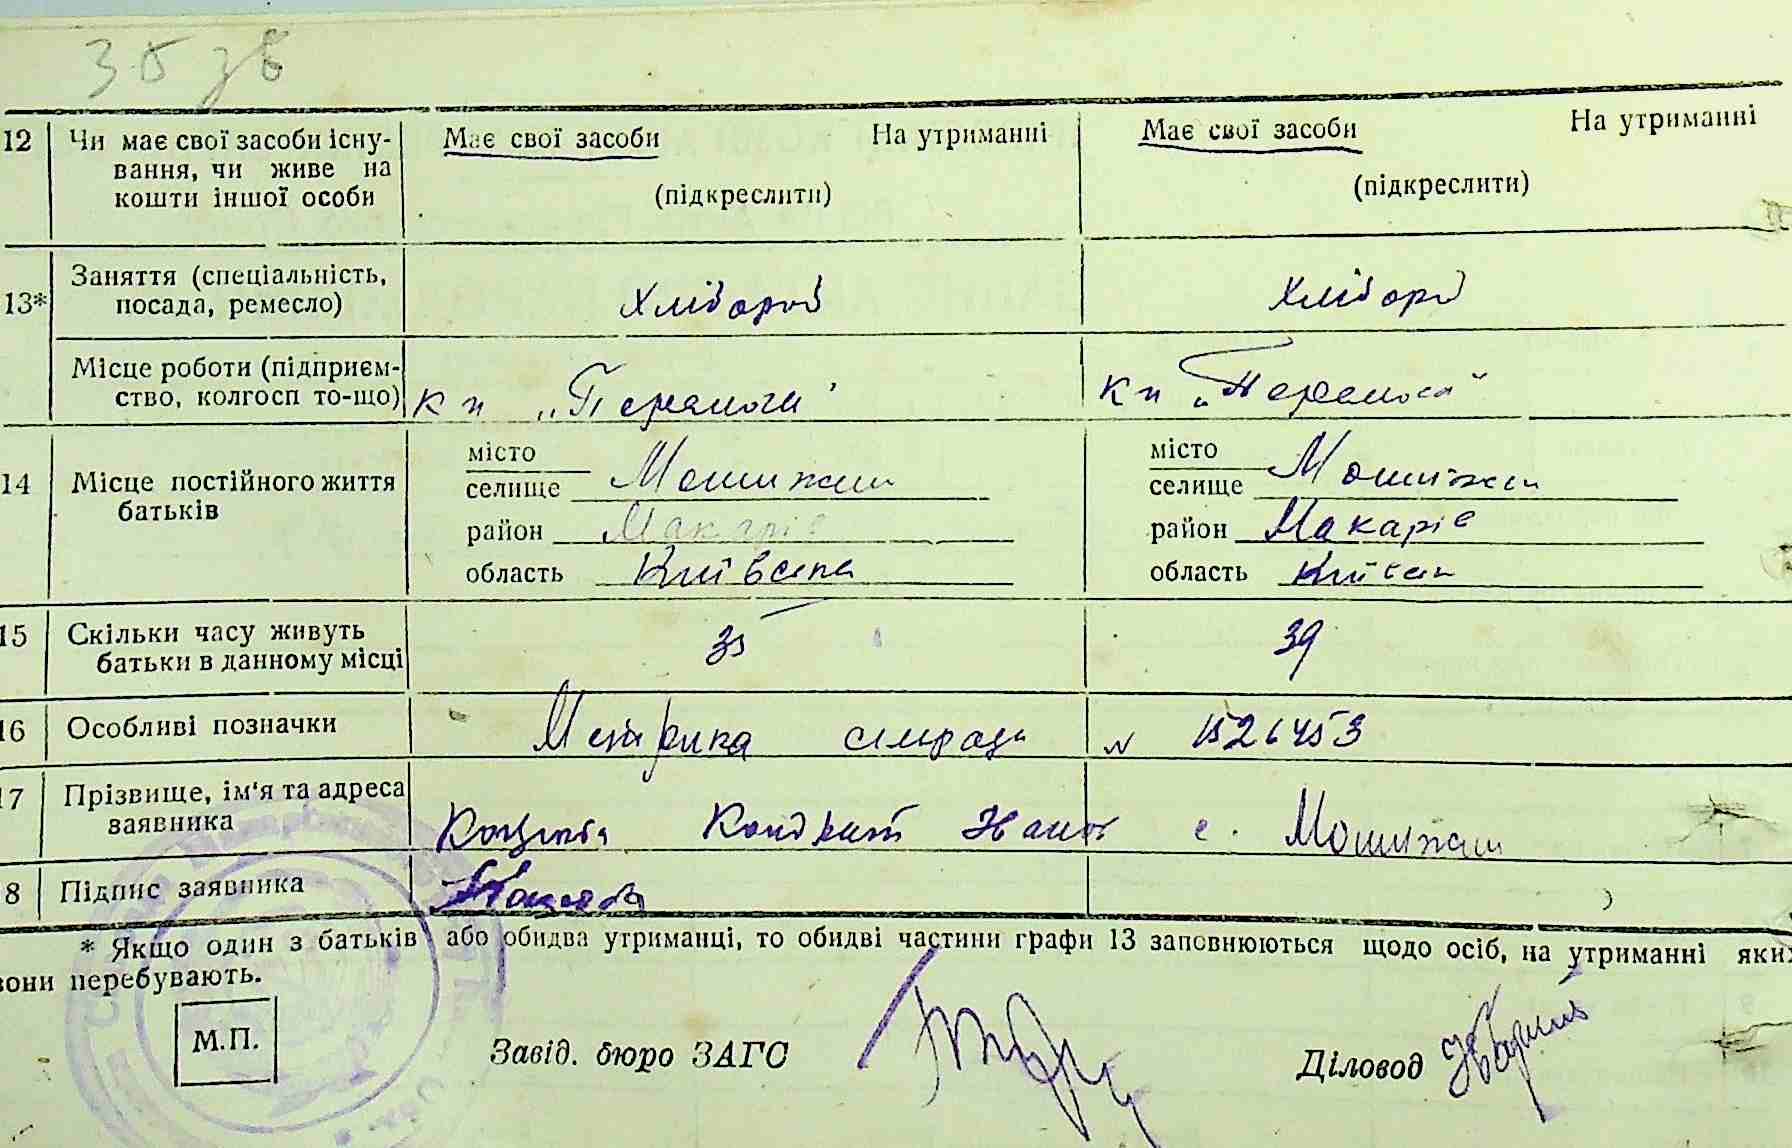 35 зв
12 Чи має свої засоби існу- Має свої засоби На утриманні Має свої засоби На утриманні
вання, чи живе на
кошти іншої особи (підкреслити) (підкреслити)
13* Заняття (спеціальність,
посада, ремесло) Хлібороб Хлібороб
Місце роботи (підприєм-
ство, колгосп то-що) к п „Перемоги" к п „Перемога"
14 Місце постійного життя
батьків
місто місто
селище Мошижин селище Мошижин
район Макарів район Макарів
область Київська область Київськ
15 Скільки часу живуть
батьки в данному місці 35 39
16 Особливі позначки Метрика сільради № 1526453
17 Прізвище, ім'я та адреса
заявника Коцюба Кондрат Іванов с. Мошижин
8 Підпис заявника Коцюба
* Якщо один з батьків або обидва утриманці, то обидві частини графи 13 заповнюються щодо осіб, на утриманні яких
вони перебувають.
М.П. Завід. бюро ЗАГС Діловод